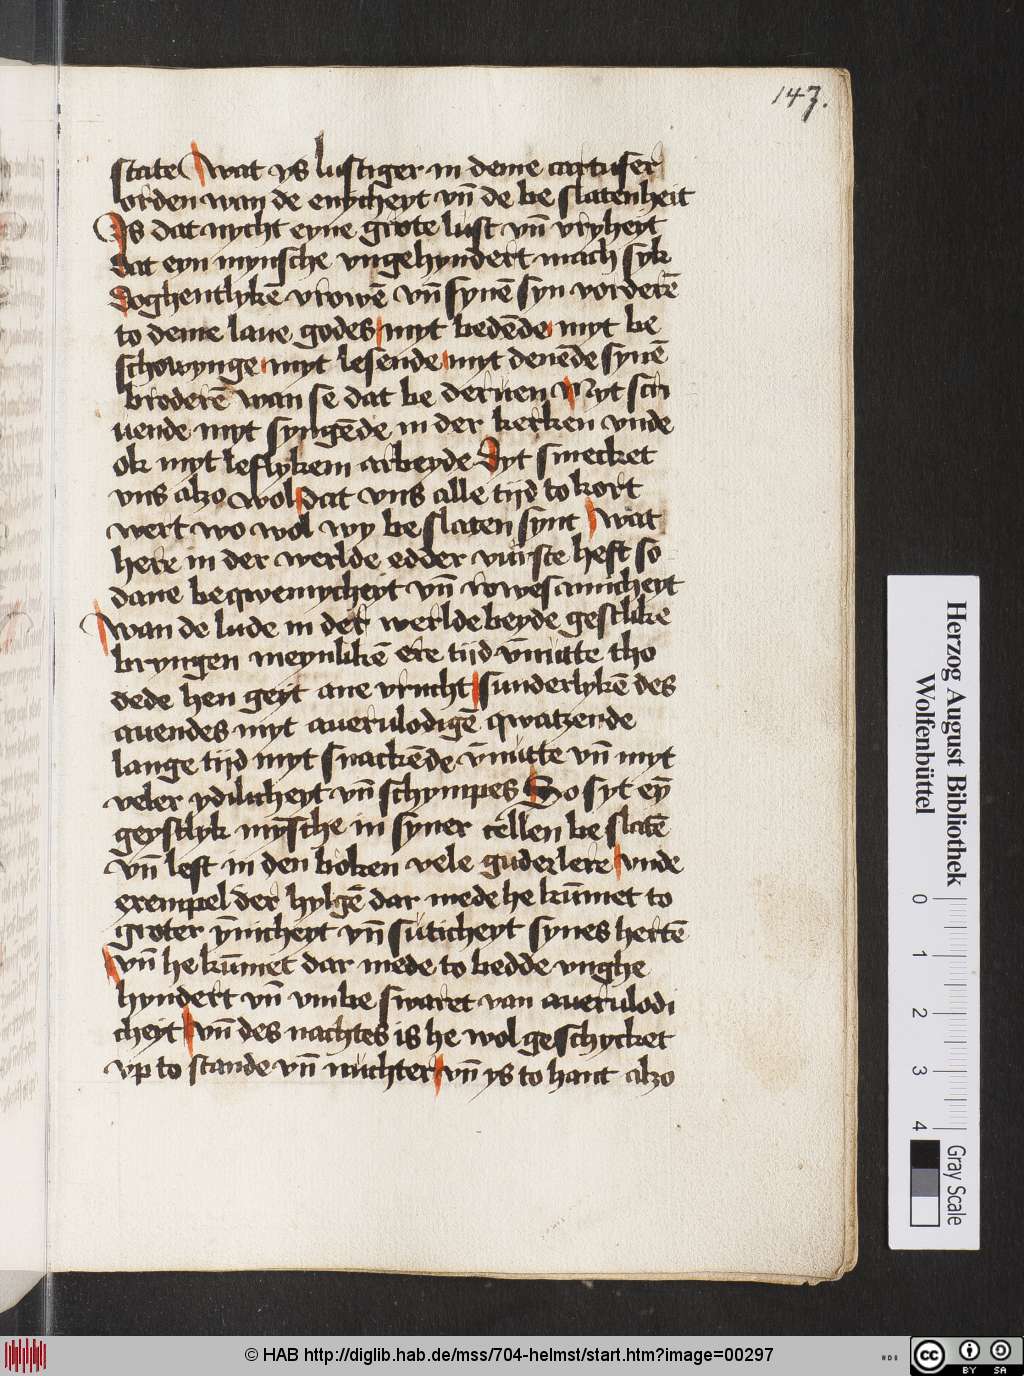 147.
state wat ys lustiger in deme cartuser
orden wan de enycheyt vn̄ de be slatenheit
Js dat nycht eyne grote lust vn̄ vryheyt
dat eyn mynsche vngehyndert mach syk
doghentlykē vrowē vn̄ synē syn vorderē
to deme laue godes myt bedēde myt be
schowynge myt lesende myt denēde synē
broderē wan se dat be deruen Myt scri
uende myt syngēde in der kerken vnde
ok myt leflykem arbeyde Dyt smecket
vns alzo wol dat vns alle tijd to kort
wert wo wol wy be slaten synt wat
here in der werlde edder vurste heft so
dane beqwemycheyt vn̄ rowesamicheyt
wan de lude in der werlde beyde gestlike
bryngen meynlikē ere tijd vn̄nutte tho
dede hen geyt ane vrucht sunderlykē des
auendes myt auerulodigē qwatzende
lange tijd myt snackēde vn̄nutte vn̄ myt
veler ydilicheyt vn̄ schympes So syt eȳ
geystlyk mȳsche in syner cellen be slatē
vn̄ lest in den boken vele guder lere vnde
exempel der hylgē dar mede he kūmet to
groter ȳnicheyt vn̄ suticheyt synes hertē
vn̄ he kūmet dar mede to bedde vnghe
hyndert vn̄ vmbe swaret van auerulodi
cheyt vn̄ des nachtes is he wol geschycket
vp to stande vn̄ nuchter vn̄ ys to hant alzo
Herzog August Bibliothek
Wolfenbüttel
0 1 2 3 4
Gray Scale
© HAB http://diglib.hab.de/mss/704-helmst/start.htm?image=00297
HDB
cc BY SA